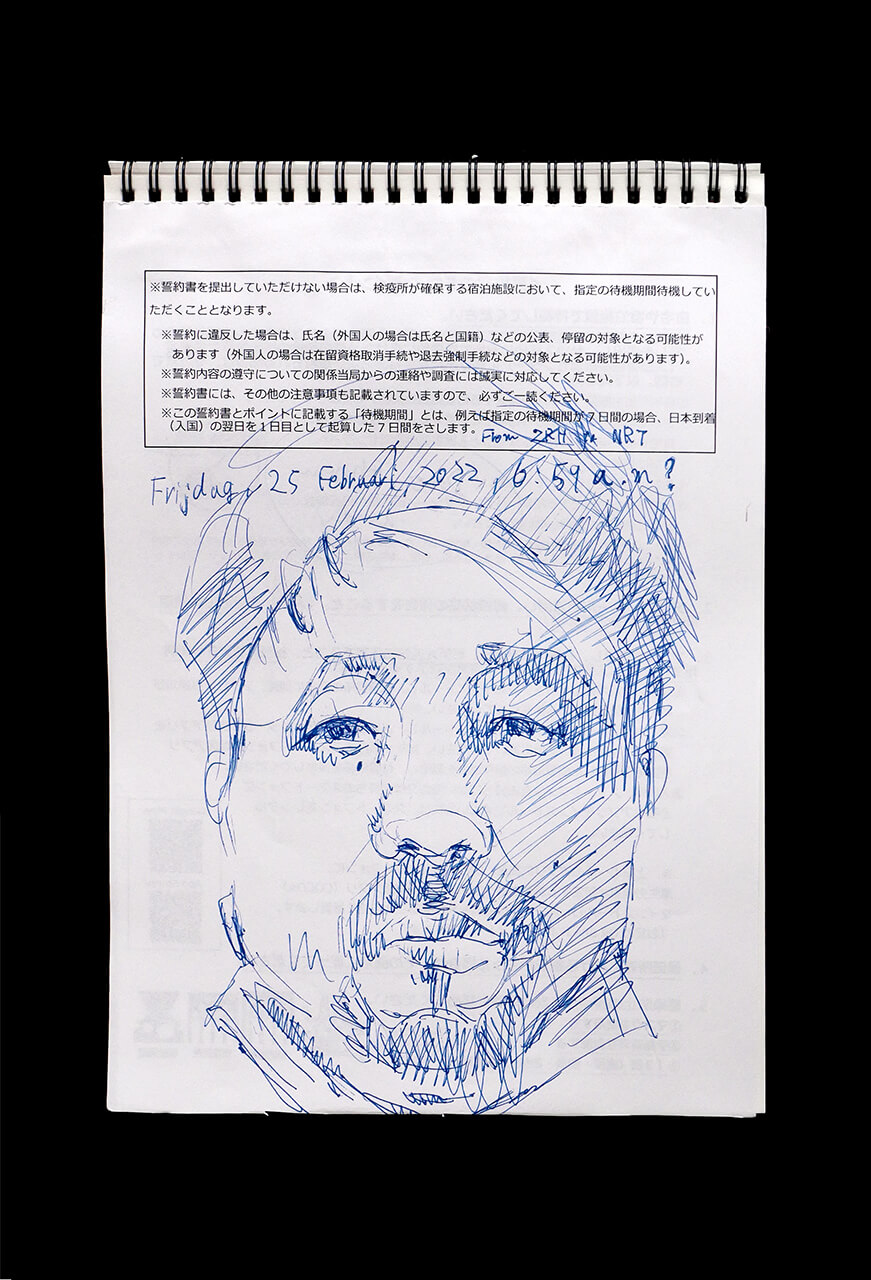 ※誓約書を提出していただけない場合は、検疫所が確保する宿泊施設において、指定の待機期間待機してい
ただくこととなります。
※誓約に違反した場合は、氏名（外国人の場合は氏名と国籍）などの公表、停留の対象となる可能性が
あります（外国人の場合は在留資格取消手続や退去強制手続などの対象となる可能性があります）。
※誓約内容の遵守についての関係当局からの連絡や調査には誠実に対応してください。
※誓約書には、その他の注意事項も記載されていますので、必ずご一読ください。
※この誓約書とポイントに記載する「待機期間」とは、例えば指定の待機期間が７日間の場合、日本到着
（入国）の翌日を１日目として起算した７日間をさします。
From ZRH to NRT
Frijdag, 25 Februari, 2022, 6:59 a.m?